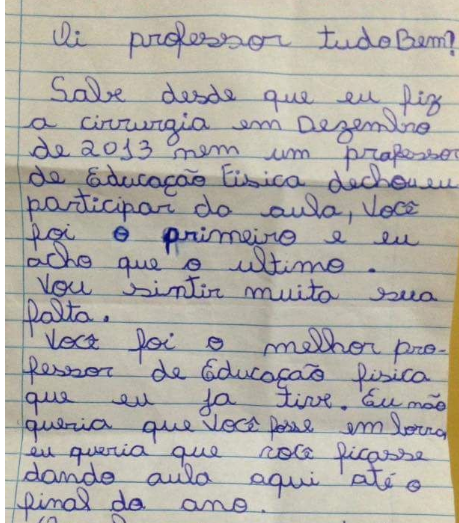 Oi professor tudo Bem?
Sabe desde que eu fiz
a cirrurgia em Dezembro
de 2013 nem um professor
de Educação Fisica dechou eu
participar da aula, Você
foi o primeiro e eu
acho que o ultimo.
Vou sintir muita sua
falta.
Você foi o melhor pro-
fessor de Educação fisica
que eu ja tive. Eu não
queria que Você fosse embora
eu queria que você ficasse
dando aula aqui até o
final do ano.